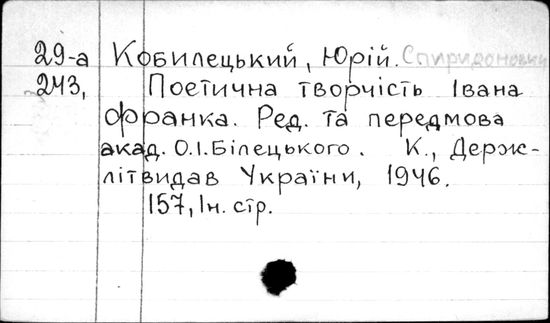 29-а Кобилецький, Юрій. Спиридонович
243, Поетична творчість Івана
Франка. Ред. та передмова
акад. О.І.Білецького. К., Держ-
літвидав України, 1946.
157, 1н. стр.